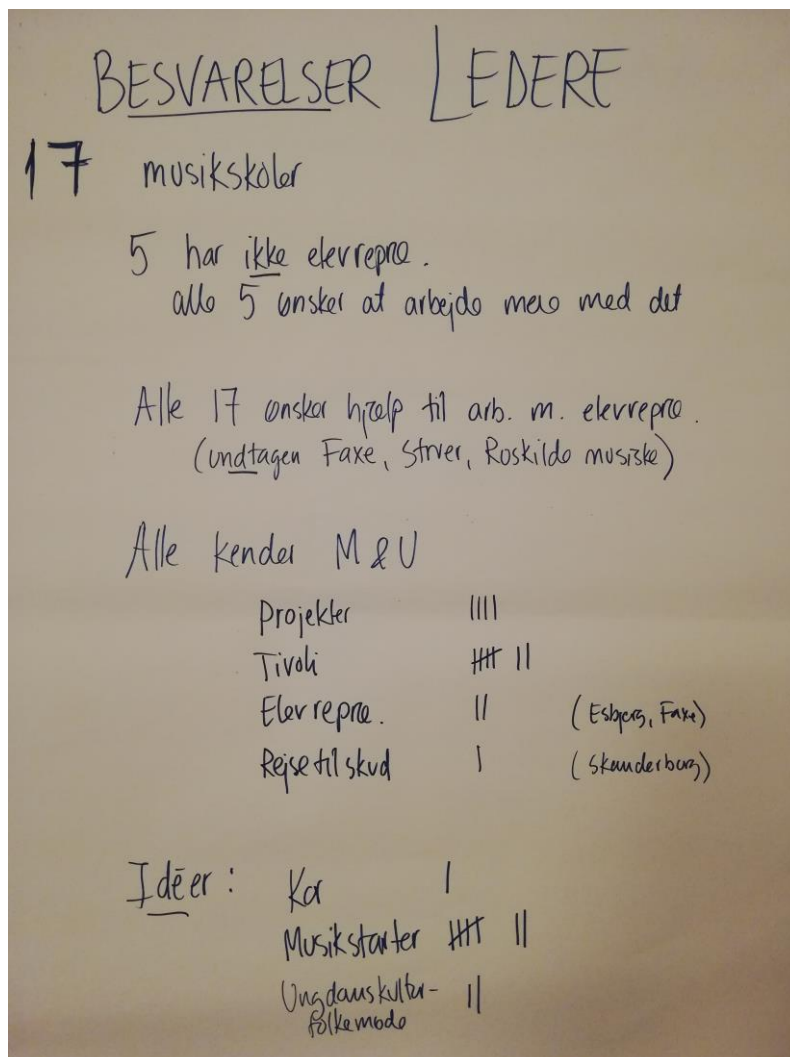 BESVARELSER LEDERE
17 musikskoler
5 har ikke elevrepræ.
alle 5 ønsker at arbejde mere med det
Alle 17 ønsker hjælp til arb. m. elevrepræ.
(undtagen Faxe, Struer, Roskilde musiske)
Alle kender M & U
Projekter IIII
Tivoli HHT II
Elevrepræ. II (Esbjerg, Faxe)
Rejsetilskud I (Skanderborg)
Idéer: Kor I
Musikstarter HHT II
Ungdomskultur- II
folkemøde